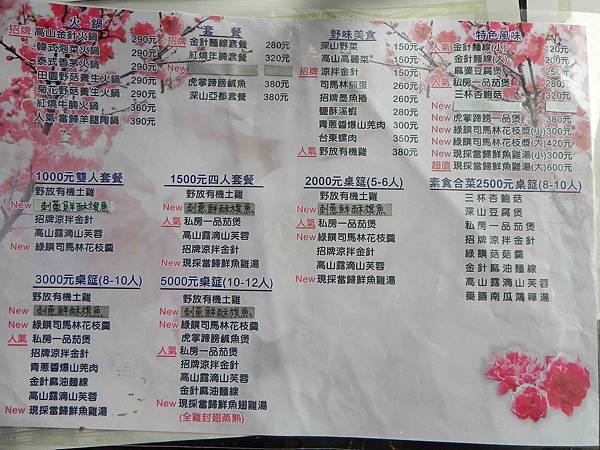 火鍋
招牌 高山金針火鍋 290元
韓式泡菜火鍋 290元
泰式香茅火鍋 290元
田園野菇養生火鍋 290元
菊花野菇養生火鍋 390元
紅燒牛腩火鍋 360元
人氣 當歸羊腿陶鍋 390元
套餐
招牌 金針麵線套餐 280元
紅燒牛腩套餐 320元
New
虎掌蹄膀鹹魚 380元
深山亞都套餐 380元
野味美食
深山野菜 150元
高山高麗菜 150元
招牌 涼拌金針 150元
司馬林煎蛋 200元
招牌墨魚捲 200元
鹽酥溪蝦 280元
青蔥醬爆山羌肉 300元
台東螺肉 350元
人氣 野放有機雞 380元
特色風味
人氣 金針麵線(小) 120元
金針麵線(大) 200元
麻婆豆腐煲 250元
三杯杏鮑菇 320元
New
New 虎掌蹄膀鹹魚煲
人氣 私房一品茄煲
New 綠鎖司馬林花枝獎(小) 300元
New 綠鎖司馬林花枝獎(大) 420元
New 現採當歸鮮魚雞湯(小) 300元
超值 現採當歸鮮魚雞湯(大) 600元
1000元雙人套餐
野放有機土雞
New 刺蔥鮮酥旗魚
招牌涼拌金針
高山露滴山芙蓉
New 綠鎖司馬林花枝羹
1500元四人套餐
野放有機土雞
New 刺蔥鮮酥旗魚
人氣 私房一品茄煲
招牌涼拌金針
高山露滴山芙蓉
New 現採當歸鮮魚雞湯
2000元桌筵(5-6人)
野放有機土雞
New 刺蔥鮮酥旗魚
人氣 私房一品茄煲
New 綠鎖司馬林花枝羹
招牌涼拌金針
高山露滴山芙蓉
New 現採當歸鮮魚雞湯
素食合菜2500元桌筵(8-10人)
三杯杏鮑菇
深山豆腐煲
私房一品茄煲
招牌涼拌金針
綠鎖菇菇羹
金針麻油麵線
高山露滴山芙蓉
藥膳南瓜鴻禪湯
3000元桌筵(8-10人)
野放有機土雞
New 刺蔥鮮酥旗魚
New 綠鎖司馬林花枝羹
人氣 私房一品茄煲
招牌涼拌金針
青蔥醬爆山羌肉
金針麻油麵線
高山露滴山芙蓉
New 現採當歸鮮魚雞湯
5000元桌筵(10-12人)
野放有機土雞
New 刺蔥鮮酥旗魚
New 綠鎖司馬林花枝羹
New 虎掌蹄膀鹹魚煲
人氣 私房一品茄煲
招牌涼拌金針
高山露滴山芙蓉
金針麻油麵線
高山露滴山芙蓉
New 現採當歸鮮魚翅雞湯
(全雞封翅蒸熟)